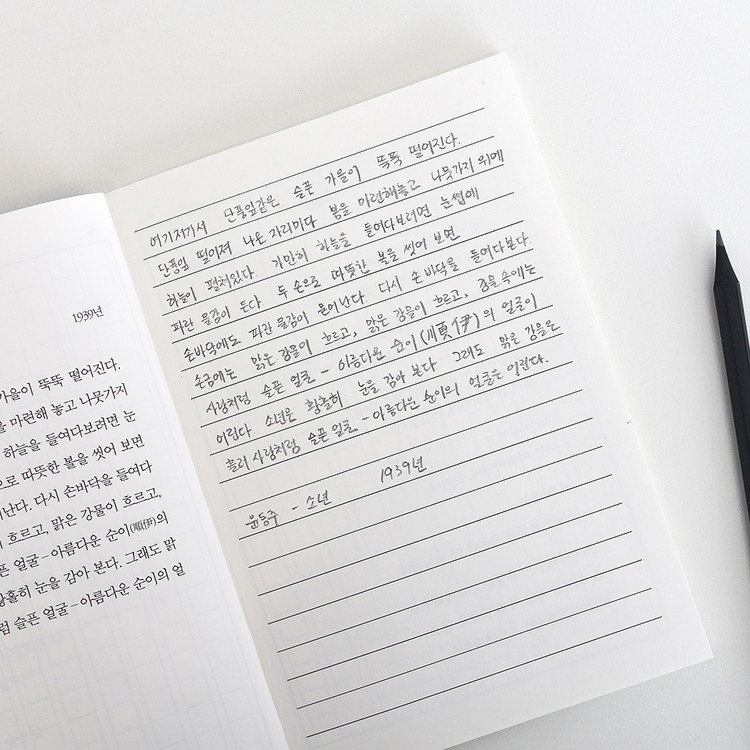 1939년
가을이 뚝뚝 떨어진다.
을 마련해 놓고 나뭇가지
하늘을 들여다보려면 눈
으로 따뜻한 볼을 씻어 보면
어난다. 다시 손바닥을 들여다
흐르고, 맑은 강물이 흐르고,
픈 얼굴 – 아름다운 순이(順伊)의
황홀히 눈을 감아 본다. 그래도 맑
럼 슬픈 얼굴 – 아름다운 순이의 얼
여기저기서 단풍잎같은 슬픈 가을이 뚝뚝 떨어진다.
단풍잎 떨어져 나온 자리마다 봄을 마련해놓고 나뭇가지 위에
하늘이 펼쳐있다. 가만히 하늘을 들여다보려면 눈썹에
파란 물감이 든다 두 손으로 따뜻한 볼을 씻어 보면
손바닥에도 파란 물감이 묻어난다. 다시 손바닥을 들여다본다.
손금에는 맑은 강물이 흐르고, 맑은 강물이 흐르고, 강물 속에는
사랑처럼 슬픈 얼굴 - 아름다운 순이(順伊)의 얼굴이
어린다. 소년은 황홀히 눈을 감아 본다 그래도 맑은 강물은
흘러 사랑처럼 슬픈 얼굴 - 아름다운 순이의 얼굴은 어린다.
윤동주 - 소년 1939년